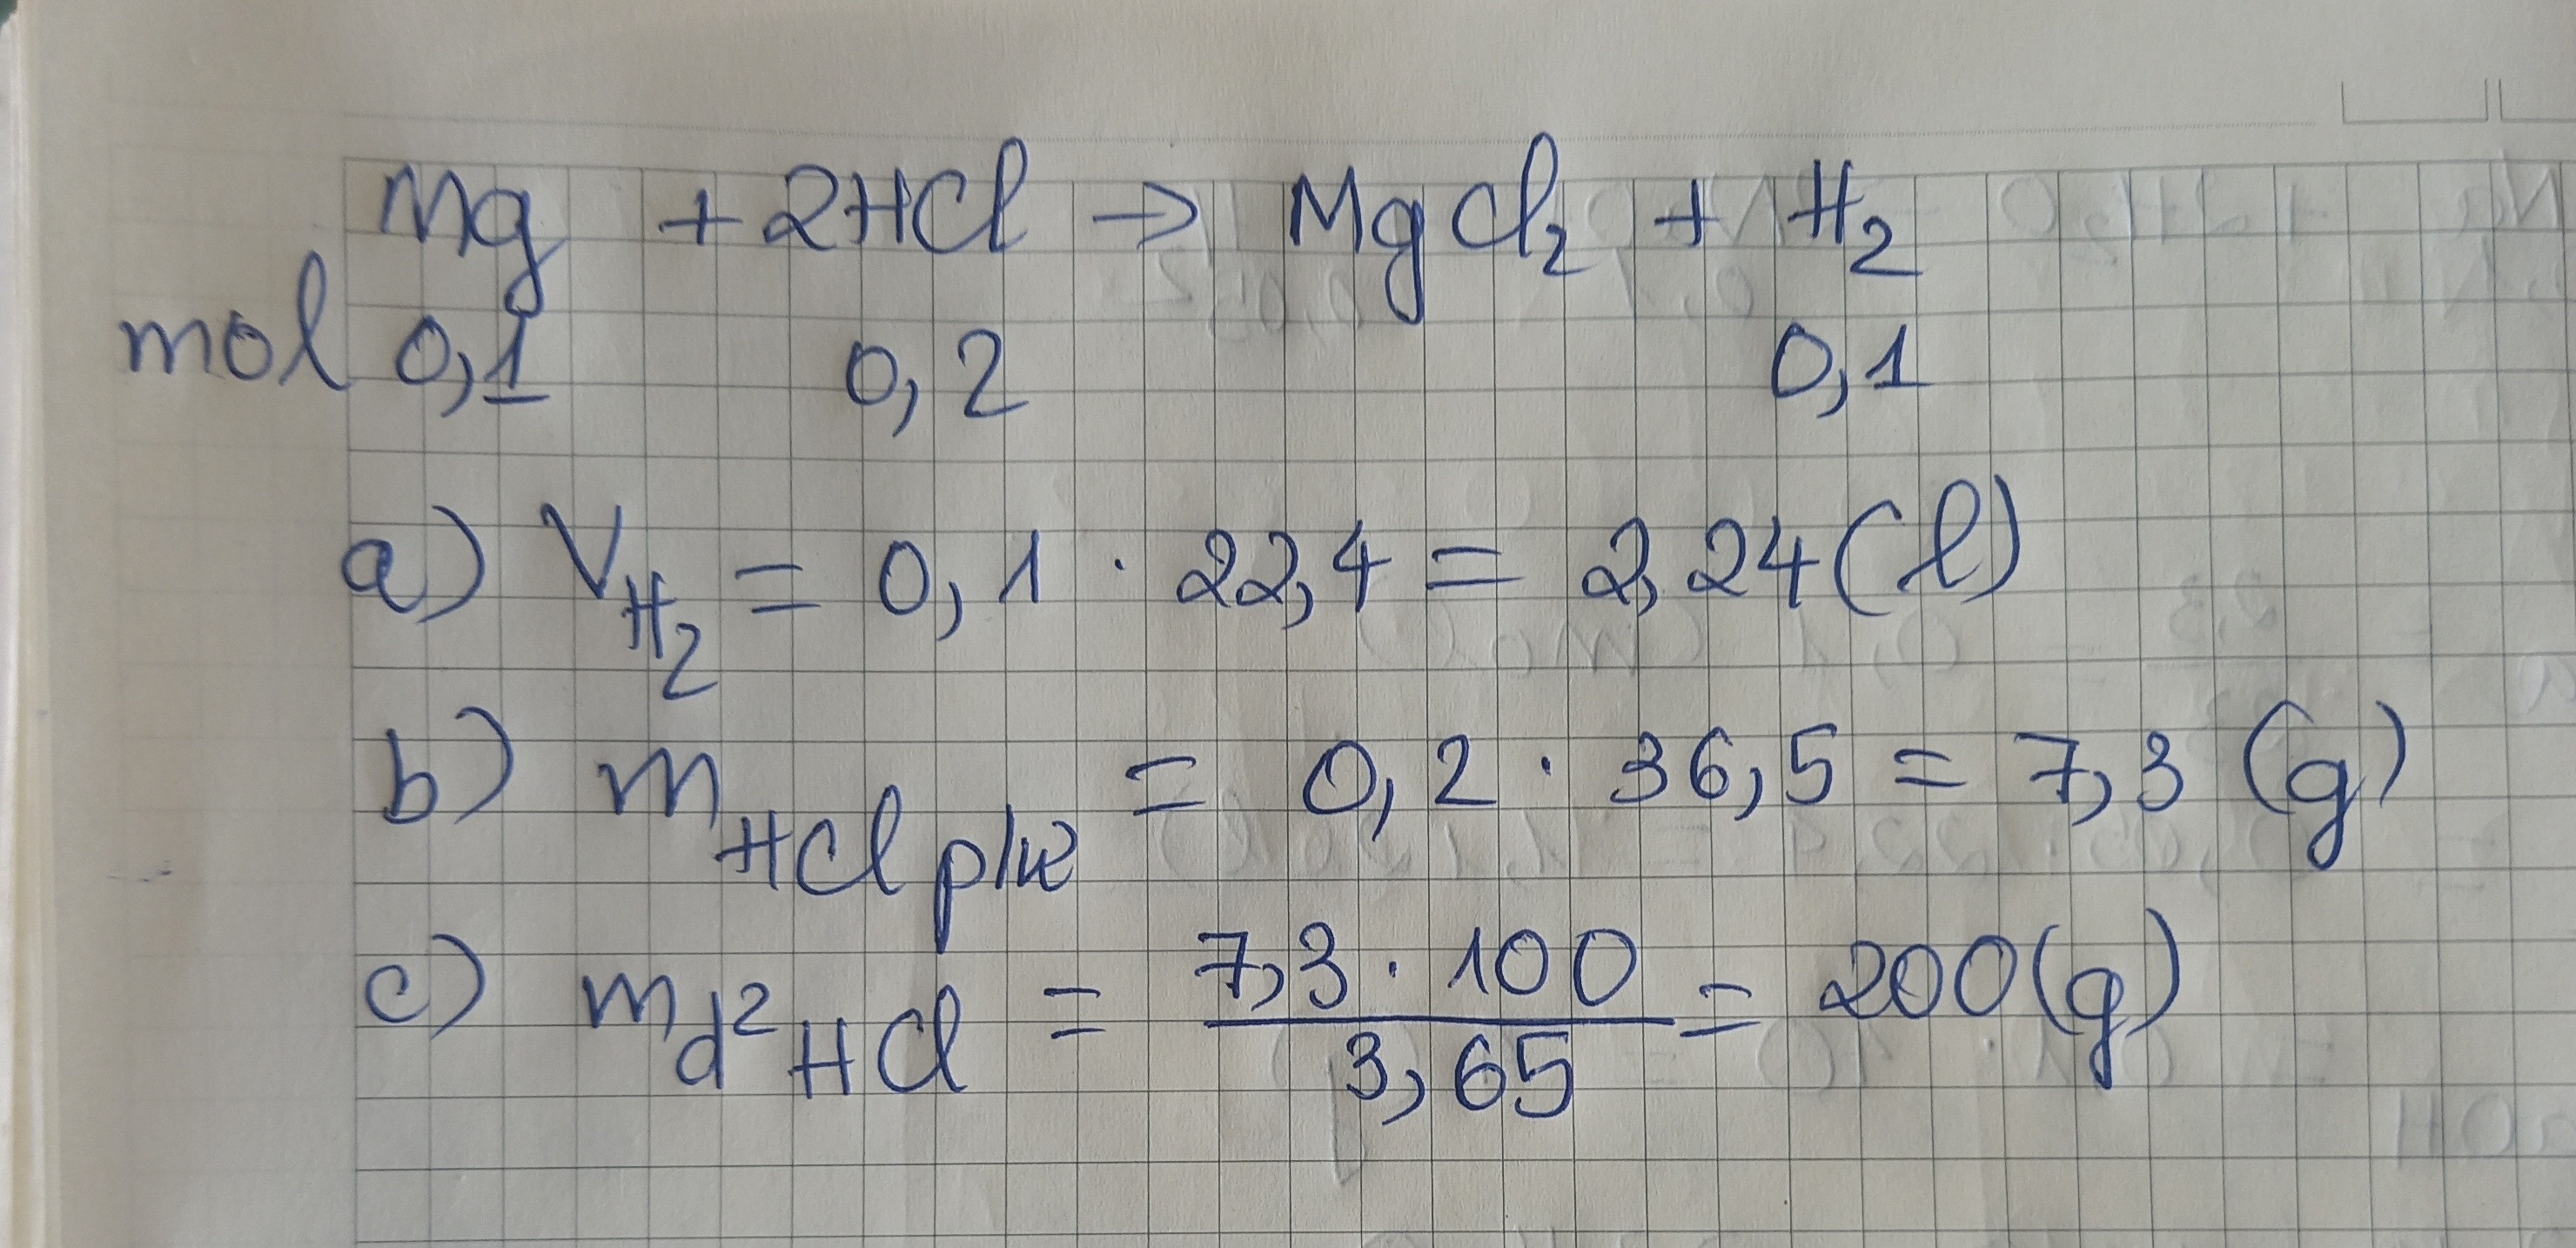 Mg + 2HCl → MgCl₂ + H₂
mol 0,1 0,2 0,1
a) V_H₂ = 0,1 · 22,4 = 2,24 (l)
b) m_HCl pứ = 0,2 · 36,5 = 7,3 (g)
c) m_d² HCl = 7,3 · 100 / 3,65 = 200 (g)